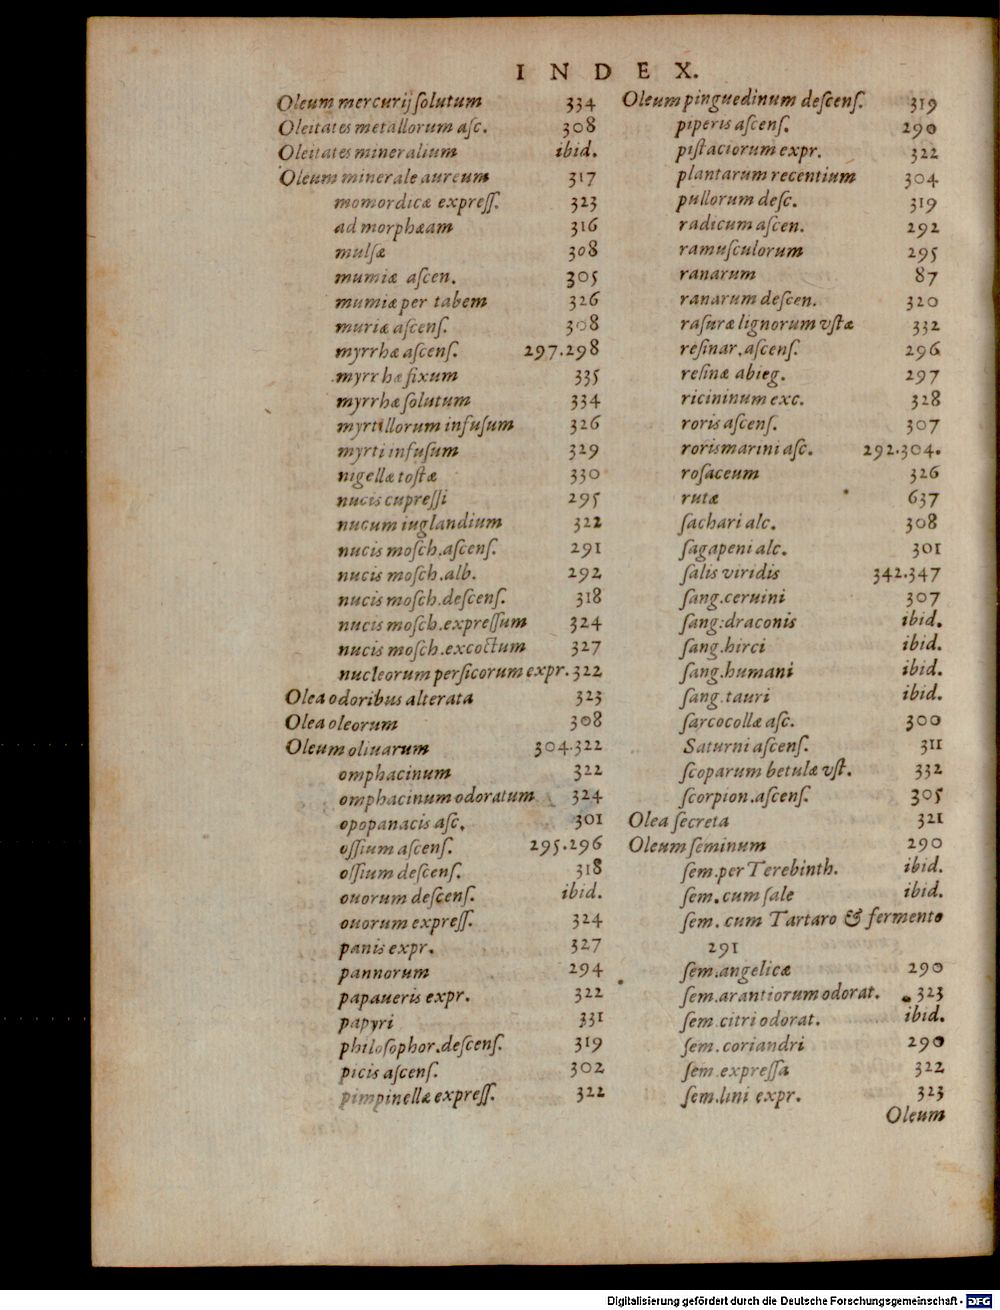 INDEX.
Oleum mercurij ſolutum 334
Oleitates metallorum aſc. 308
Oleitates mineralium ibid.
Oleum minerale aureum 317
momordicæ expreſſ. 323
ad morphæam 316
mulſæ 308
mumiæ aſcen. 305
mumiæ per tabem 326
muriæ aſcenſ. 308
myrrhæ aſcenſ. 297.298
myrrhæ fixum 335
myrrhæ ſolutum 334
myrtillorum infuſum 326
myrti infuſum 329
nigellæ toſtæ 330
nucis cupreſſi 295
nucum iuglandium 322
nucis moſch.aſcenſ. 291
nucis moſch.alb. 292
nucis moſch.deſcenſ. 318
nucis moſch.expreſſum 324
nucis moſch.excoctum 327
nucleorum perſicorum expr. 322
Olea odoribus alterata 323
Olea oleorum 308
Oleum oliuarum 304.322
omphacinum 322
omphacinum odoratum 324
opopanacis aſc. 301
oſſium aſcenſ. 295.296
oſſium deſcenſ. 318
ouorum deſcenſ. ibid.
ouorum expreſſ. 324
panis expr. 327
pannorum 294
papaueris expr. 322
papyri 331
philoſophor.deſcenſ. 319
picis aſcenſ. 302
pimpinellæ expreſſ. 322
Oleum pinguedinum deſcenſ. 319
piperis aſcenſ. 290
piſtaciorum expr. 322
plantarum recentium 304
pullorum deſc. 319
radicum aſcen. 292
ramuſculorum 295
ranarum 87
ranarum deſcen. 320
raſuræ lignorum vſtæ 332
reſinar.aſcenſ. 296
reſinæ abieg. 297
ricininum exc. 328
roris aſcenſ. 307
rorismarini aſc. 292.304.
roſaceum 326
rutæ 637
ſachari alc. 308
ſagapeni alc. 301
ſalis viridis 342.347
ſang.ceruini 307
ſang:draconis ibid.
ſang.hirci ibid.
ſang.humani ibid.
ſang.tauri ibid.
ſarcocollæ aſc. 300
Saturni aſcenſ. 311
ſcoparum betulæ vſt. 332
ſcorpion.aſcenſ. 305
Olea ſecreta 321
Oleum ſeminum 290
ſem.per Terebinth. ibid.
ſem.cum ſale ibid.
ſem. cum Tartaro & fermento
291
ſem.angelicæ 290
ſem.arantiorum odorat. 323
ſem.citri odorat. ibid.
ſem.coriandri 290
ſem.expreſſa 322
ſem.lini expr. 323
Oleum
Digitalisierung gefördert durch die Deutsche Forschungsgemeinschaft - DFG